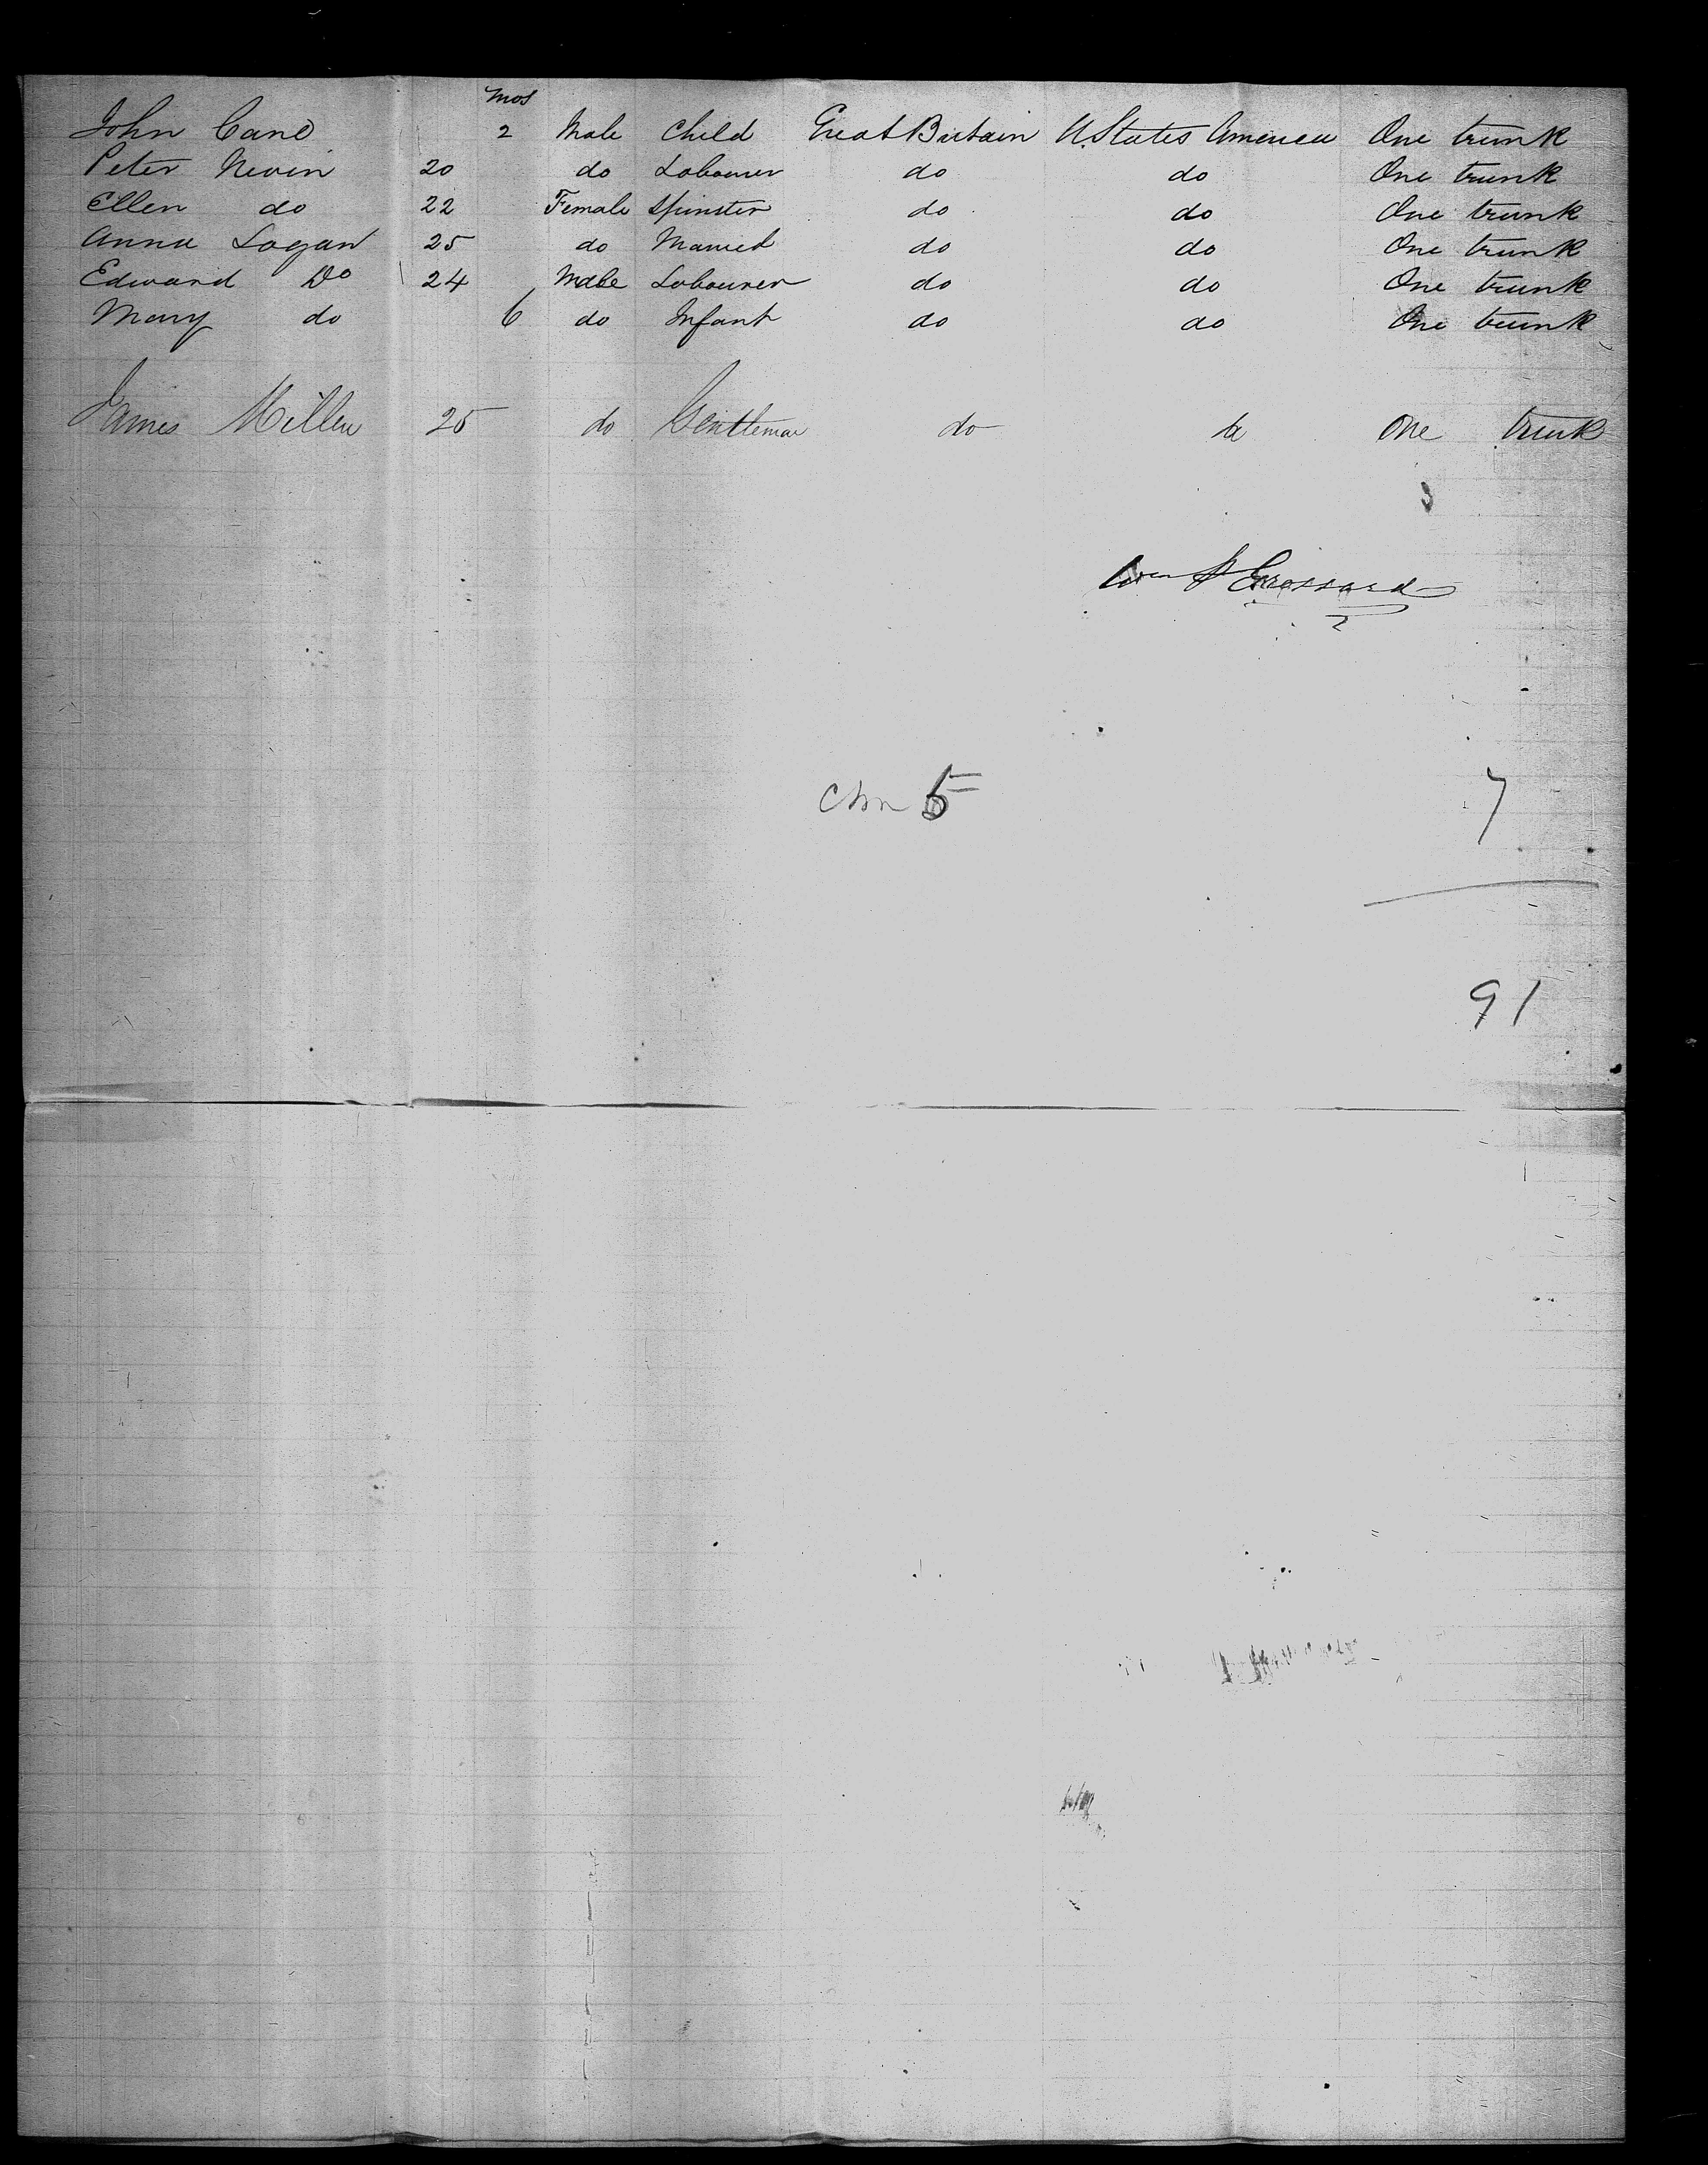 mos
John Cane 2 Male Child Great Britain U. States America One trunk
Peter Nevin 20 do Labourer do do One trunk
Ellen do 22 Female Spinster do do One trunk
Anna Logan 25 do Married do do One trunk
Edward Do 24 Male Labourer do do One trunk
Mary do 6 do Infant do do One trunk
James Miller 25 do Gentleman do do One trunk
Wm
5 7
91